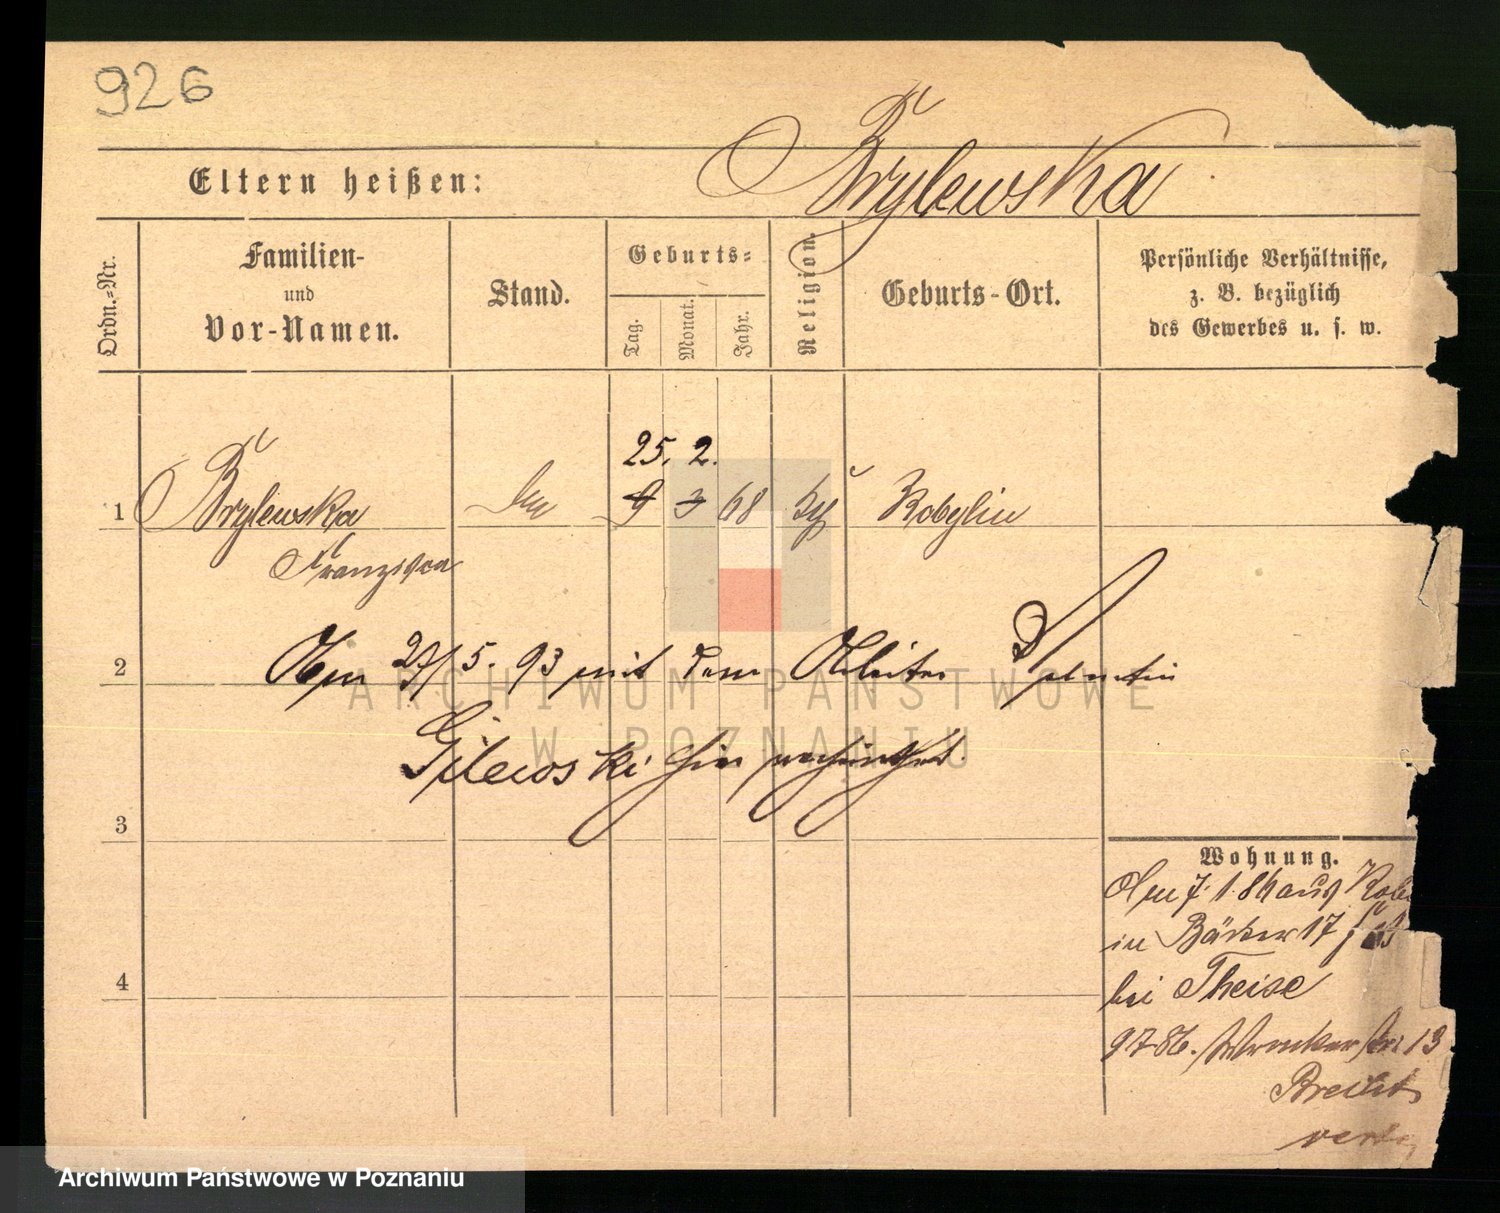 926
Brylewska
Eltern heißen:
Ordn.-Nr.
Familien-
und
Vor-Namen.
Stand.
Geburts-
Tag.
Monat.
Jahr.
Religion.
Geburts-Ort.
Persönliche Verhältnisse,
z. B. bezüglich
des Gewerbes u. s. w.
25. 2.
1 Brylewska 9 3 68 Kobylin
Franziska
2 Am 27/5. 93 mit dem Arbeiter
Gilewski hier verheirathet.
3
Wohnung.
Am 7. 1. 86 aus
in Bäcker 17
4
bei Theise
9 7 86. 13
ARCHIWUM PAŃSTWOWE
W POZNANIU
Archiwum Państwowe w Poznaniu